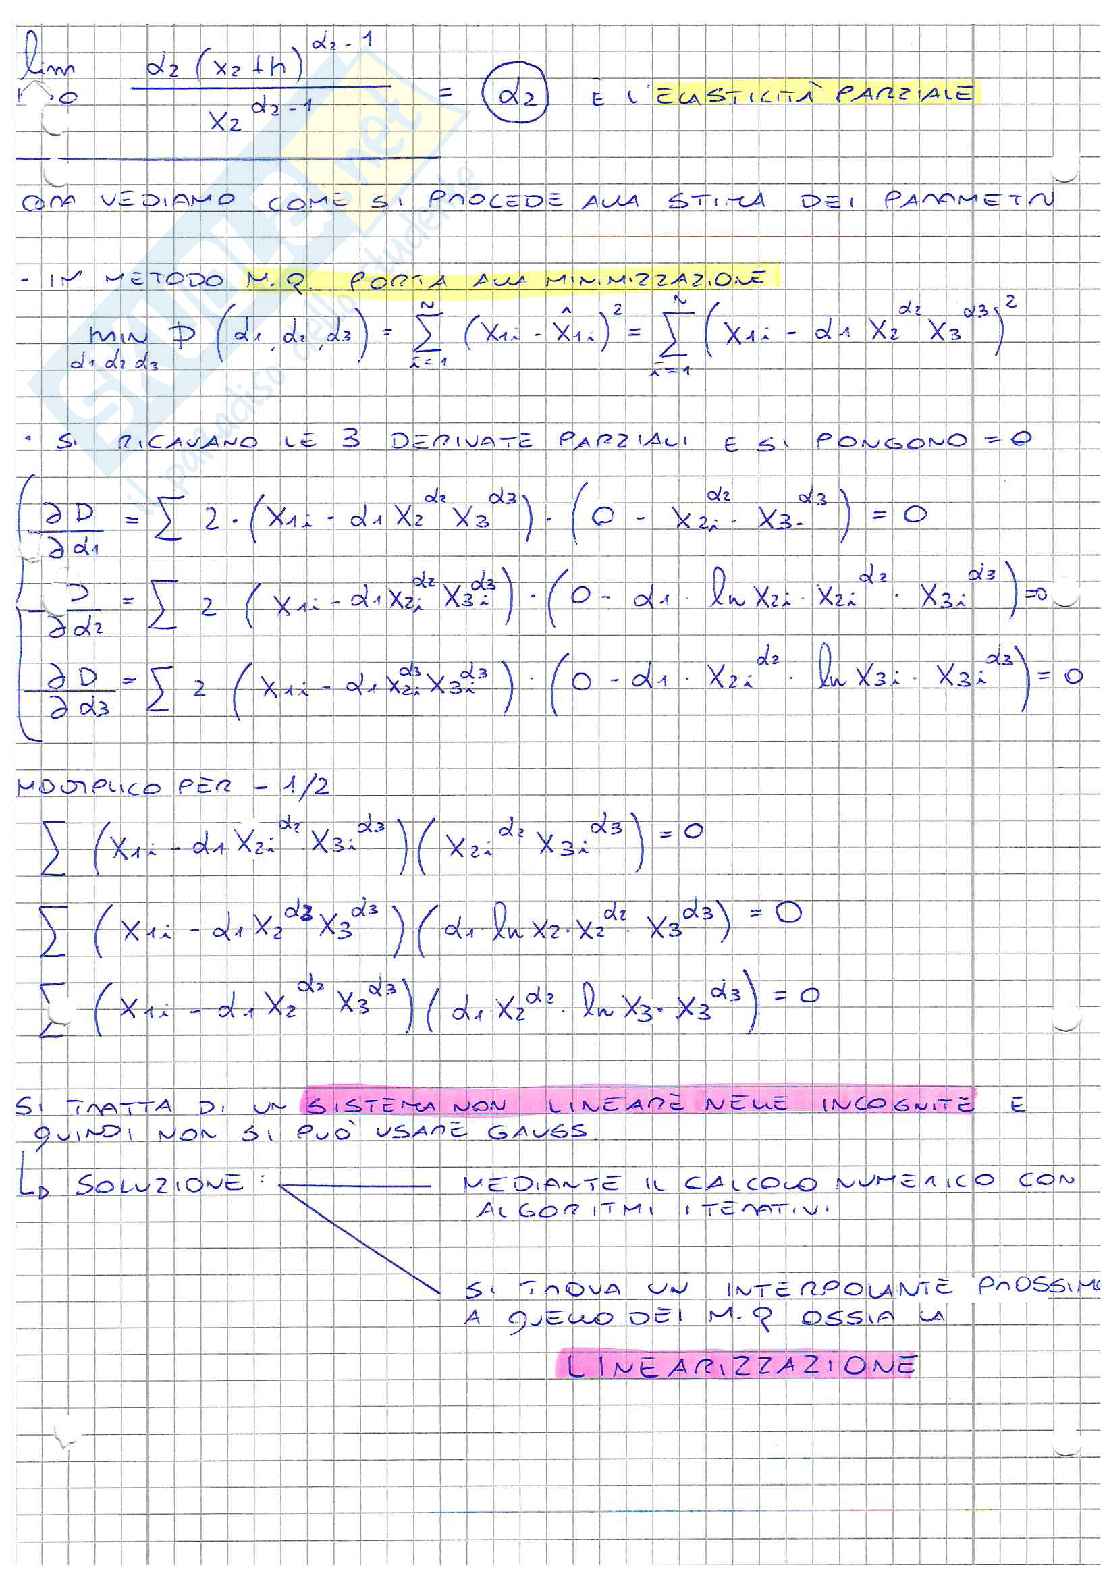 lim α2 (x2+h)^(α2-1) / x2^(α2-1) = α2 È L'ELASTICITÀ PARZIALE
h→0
ORA VEDIAMO COME SI PROCEDE ALLA STIMA DEI PARAMETRI
- IL METODO M.Q. PORTA ALLA MINIMIZZAZIONE
min D (α1, α2, α3) = Σ (X1i - X̂1i)² = Σ (X1i - α1 X2^α2 X3^α3)²
α1 α2 α3 i=1 N i=1 N
· SI RICAVANO LE 3 DERIVATE PARZIALI E SI PONGONO = 0
∂D/∂α1 = Σ 2 · (X1i - α1 X2^α2 X3^α3) · (0 - X2i^α2 · X3^α3) = 0
∂D/∂α2 = Σ 2 (X1i - α1 X2i^α2 X3i^α3) · (0 - α1 · ln X2i · X2i^α2 · X3i^α3) = 0
∂D/∂α3 = Σ 2 (X1i - α1 X2i^α3 X3i^α3) · (0 - α1 · X2i^α2 · ln X3i · X3i^α3) = 0
MOLTIPLICO PER - 1/2
Σ (X1i - α1 X2i^α2 X3i^α3) (X2i^α2 X3i^α3) = 0
Σ (X1i - α1 X2^α2 X3^α3) (α1 ln X2 · X2^α2 · X3^α3) = 0
Σ (X1i - α1 X2^α2 X3^α3) (α1 X2^α2 · ln X3 · X3^α3) = 0
SI TRATTA DI UN SISTEMA NON LINEARE NELLE INCOGNITE E
QUINDI NON SI PUÒ USARE GAUSS
↳ SOLUZIONE : MEDIANTE IL CALCOLO NUMERICO CON
ALGORITMI ITERATIVI
SI TROVA UN INTERPOLANTE PROSSIMO
A QUELLO DEI M.Q OSSIA LA
LINEARIZZAZIONE
SKUOLA.net
il paradiso dello studente